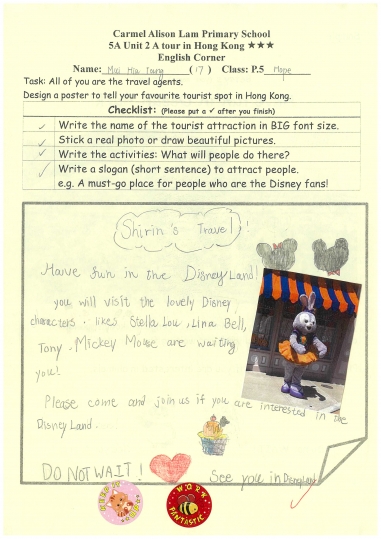 Carmel Alison Lam Primary School
5A Unit 2 A tour in Hong Kong ★★★
English Corner
Name: (17) Class: P.5 Hope
Task: All of you are the travel agents.
Design a poster to tell your favourite tourist spot in Hong Kong.
Checklist: (Please put a ✓ after you finish)
✓ Write the name of the tourist attraction in BIG font size.
✓ Stick a real photo or draw beautiful pictures.
✓ Write the activities: What will people do there?
✓ Write a slogan (short sentence) to attract people.
e.g. A must-go place for people who are the Disney fans!
Shirin's Travel!
Have fun in the DisneyLand!
you will visit the lovely Disney
characters. likes Stella Lou, Lina Bell,
Tony. Mickey Mouse are waiting
you!
Please come and join us if you are interested in the
Disney Land.
DO NOT WAIT!
See you in DisneyLand
KEEP IT UP
WORK
FANTASTIC